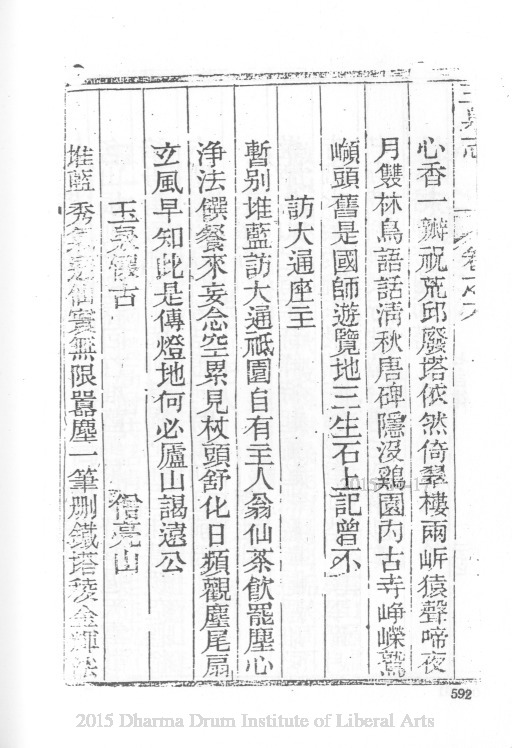 玉泉志 卷之六
心香一瓣祝荒邱廢塔依然倚翠樓兩岍猿聲啼夜
月雙林鳥語話清秋唐碑隱沒鷄園內古寺崢嶸鷲
嶺頭舊是國師遊覽地三生石上記曾不
訪大通座主
暫别堆藍訪大通祗園自有主人翁仙茶飲罷塵心
净法饌餐來妄念空累見杖頭舒化日頻觀麈尾扇
玄風早知此是傳燈地何必廬山謁遠公
玉泉懷古 僧亮山
堆藍秀仙實無限囂塵一筆刪鐵塔稜金輝法
592
2015 Dharma Drum Institute of Liberal Arts